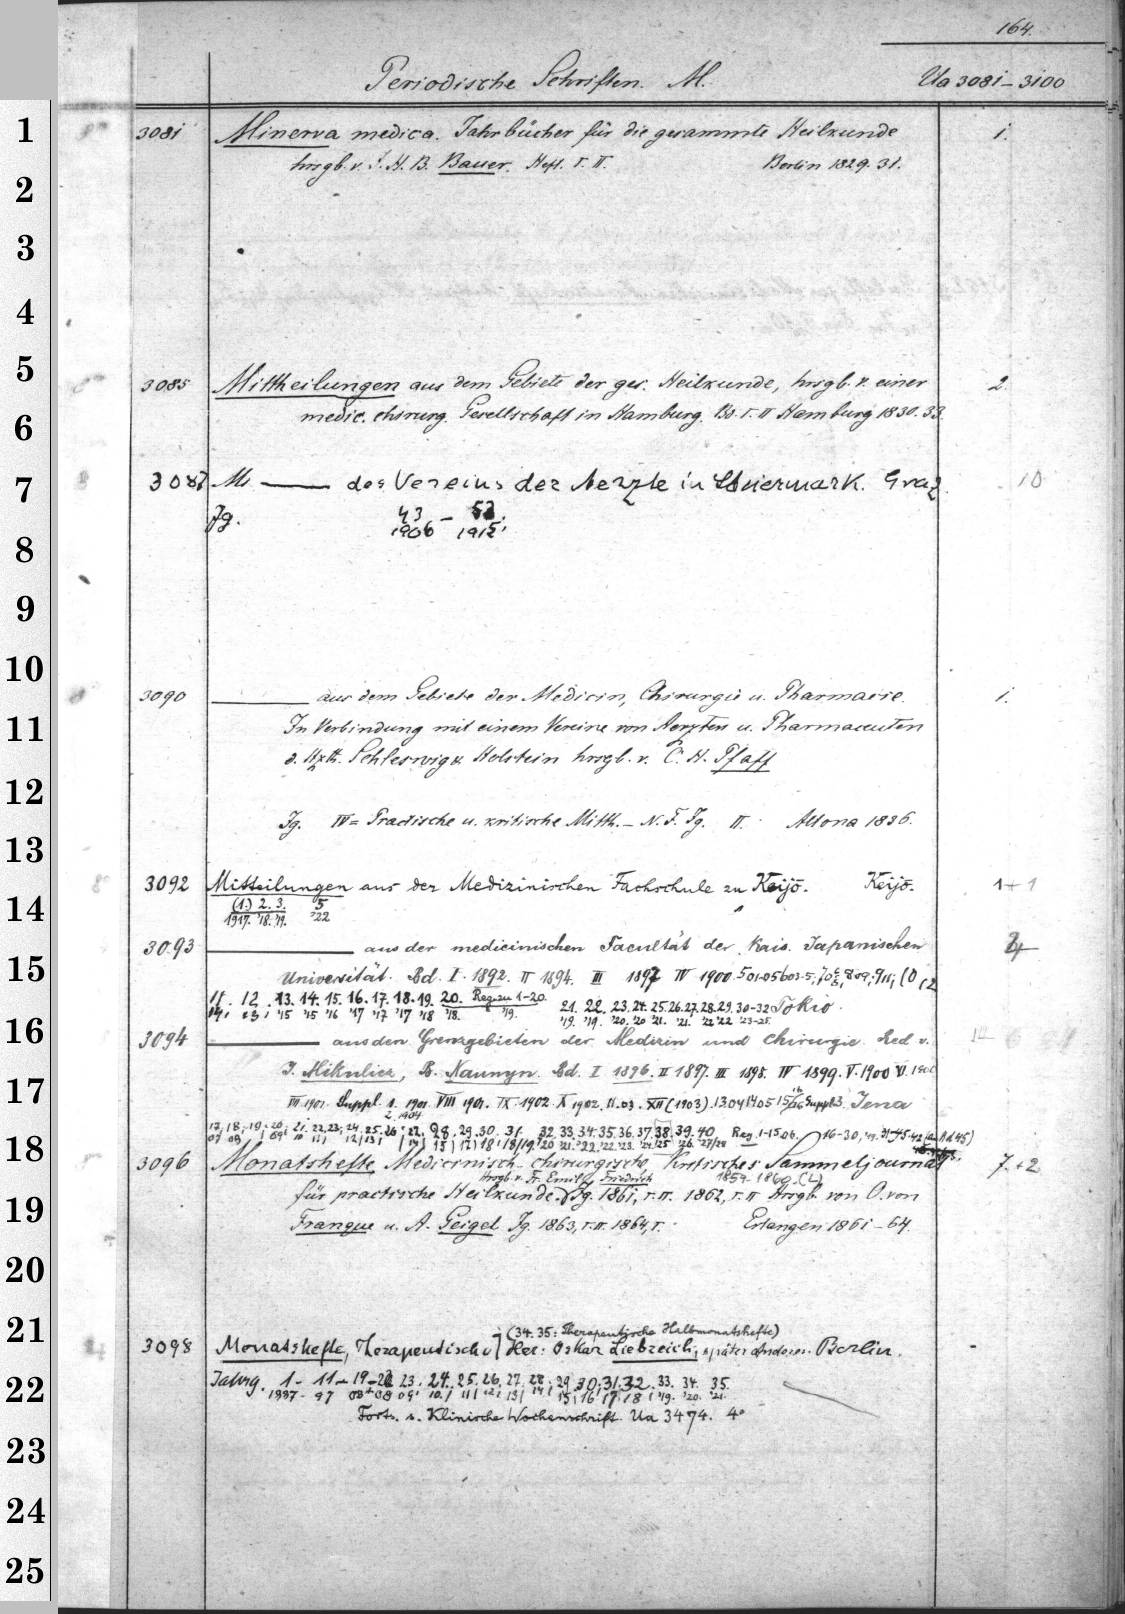 164.
Periodische Schriften. M. Ua 3081-3100
1 3081 Minerva medica. Jahrbücher für die gesammte Heilkunde 1.
hrsgb. v. J. H. B. Bauer. Heft. I. II. Berlin 1829. 31.
2
3
4
5 3085 Mittheilungen aus dem Gebiete der ges. Heilkunde, hrsgb. v. einer 2.
6 medic. chirurg. Gesellschaft in Hamburg. Bd. I. II Hamburg 1830. 33.
7 3087 M. ——— des Vereins der Aerzte in Steiermark. Graz. 10
Jg. 43 – 52.
8 1906 1915
9
10 3090 ——— aus dem Gebiete der Medicin, Chirurgie u. Pharmacie. 1.
11 In Verbindung mit einem Vereine von Aerzten u. Pharmaceuten
d. Hzth. Schleswig u. Holstein hrsgb. v. C. H. Pfaff
12
Jg. IV = Practische u. kritische Mitth. – N. F. Jg. II. Altona 1836.
13
3092 Mitteilungen aus der Medizinischen Fachschule zu Keijō. Keijō. 1+1
14 (1.) 2. 3. 5
1917. '18. '19. '22
3093 ——— aus der medicinischen Facultät der Kais. Japanischen
15 Universität. Bd. I. 1892. II 1894. III 1897 IV 1900
11. 12. 13. 14. 15. 16. 17. 18. 19. 20. Reg. zu 1-20.
'15 '15 '16 '17 '17 '17 '18 '18. '19.
21. 22. 23. 24. 25. 26. 27. 28. 29. 30-32 Tokio.
'19. '19. '20. '20 '21. '21. '22 '22 '23-25.
16 3094 ——— aus den Grenzgebieten der Medizin und Chirurgie. Red v.
J. Mikulicz, B. Naunyn. Bd. I 1896. II 1897. III 1898. IV 1899. V. 1900 VI. 1900
17 VII 1901. Suppl. 1. 1901. VIII 1901. IX. 1902. X 1902. XI. 03. XII (1903). 13 04 14 05 Suppl 3. Jena
2. 1904
17, 18, 19, 20, 21, 22, 23, 24, 25, 26, 27, 28. 29. 30. 31. 32. 33. 34. 35. 36. 37. 38. 39. 40. Reg. 1-15. 06. 16-30,
18 3096 Monatshefte, Medicinisch-chirurgische, Kritisches Sammeljournal 7.+2
hrsgb. v. Fr. Emil Friedrich 1859-1860. (4)
für practische Heilkunde. Jg. 1861, I. II. 1862, I. II Hrsgb. von O. von
19 Franque u. A. Geigel Jg. 1863, I. II. 1864, I. Erlangen 1861-64.
20
21 (34. 35: Therapeutische Halbmonatshefte)
3098 Monatshefte, Therapeutische Her: Oskar Liebreich, später Anderen. Berlin.
22 Jahrg. 1 - 11 - 19-22 23. 24. 25. 26. 27. 28. 29. 30. 31. 32. 33. 34. 35.
1887 - 97 08 09 10. 11 12 13 14 15 16 17 18 '19. '20. '21.
Forts. s. Klinische Wochenschrift. Ua 3474. 4°
23
24
25